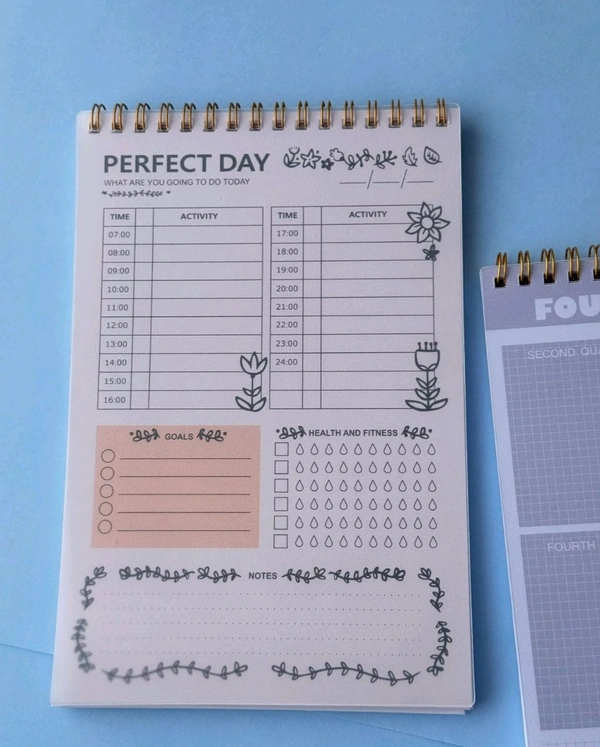 PERFECT DAY
WHAT ARE YOU GOING TO DO TODAY
__/__/__
TIME ACTIVITY
07:00
08:00
09:00
10:00
11:00
12:00
13:00
14:00
15:00
16:00
TIME ACTIVITY
17:00
18:00
19:00
20:00
21:00
22:00
23:00
24:00
GOALS
HEALTH AND FITNESS
NOTES
FOU
SECOND QUA
FOURTH